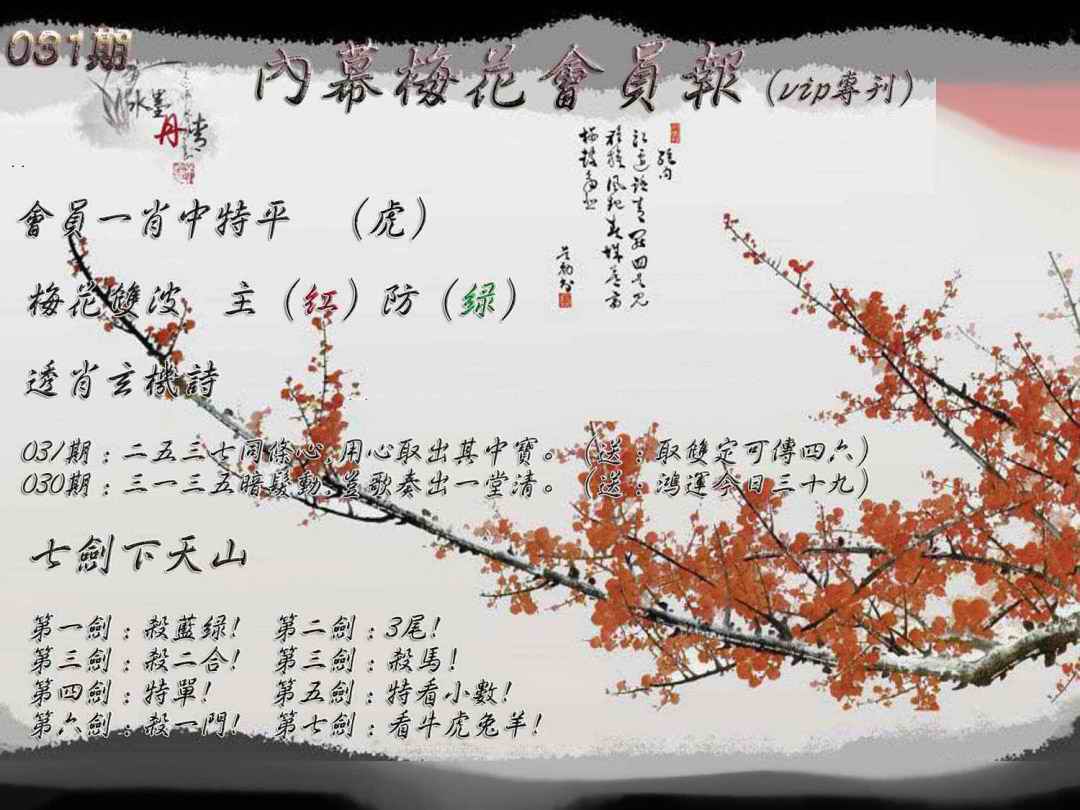 031期
內幕梅花會員報(vip專刊)
水墨
丹青
會員一肖中特平 (虎)
梅花雙波 主(红)防(绿)
透肖玄機詩
031期:二五三七同條心,用心取出其中寶。(送:取雙定可傳四六)
030期:三一三五暗髮動,笙歌奏出一堂清。(送:鴻運今日三十九)
七劍下天山
第一劍:殺藍绿! 第二劍:3尾!
第三劍:殺二合! 第三劍:殺馬!
第四劍:特單! 第五劍:特看小數!
第六劍:殺一門! 第七劍:看牛虎兔羊!